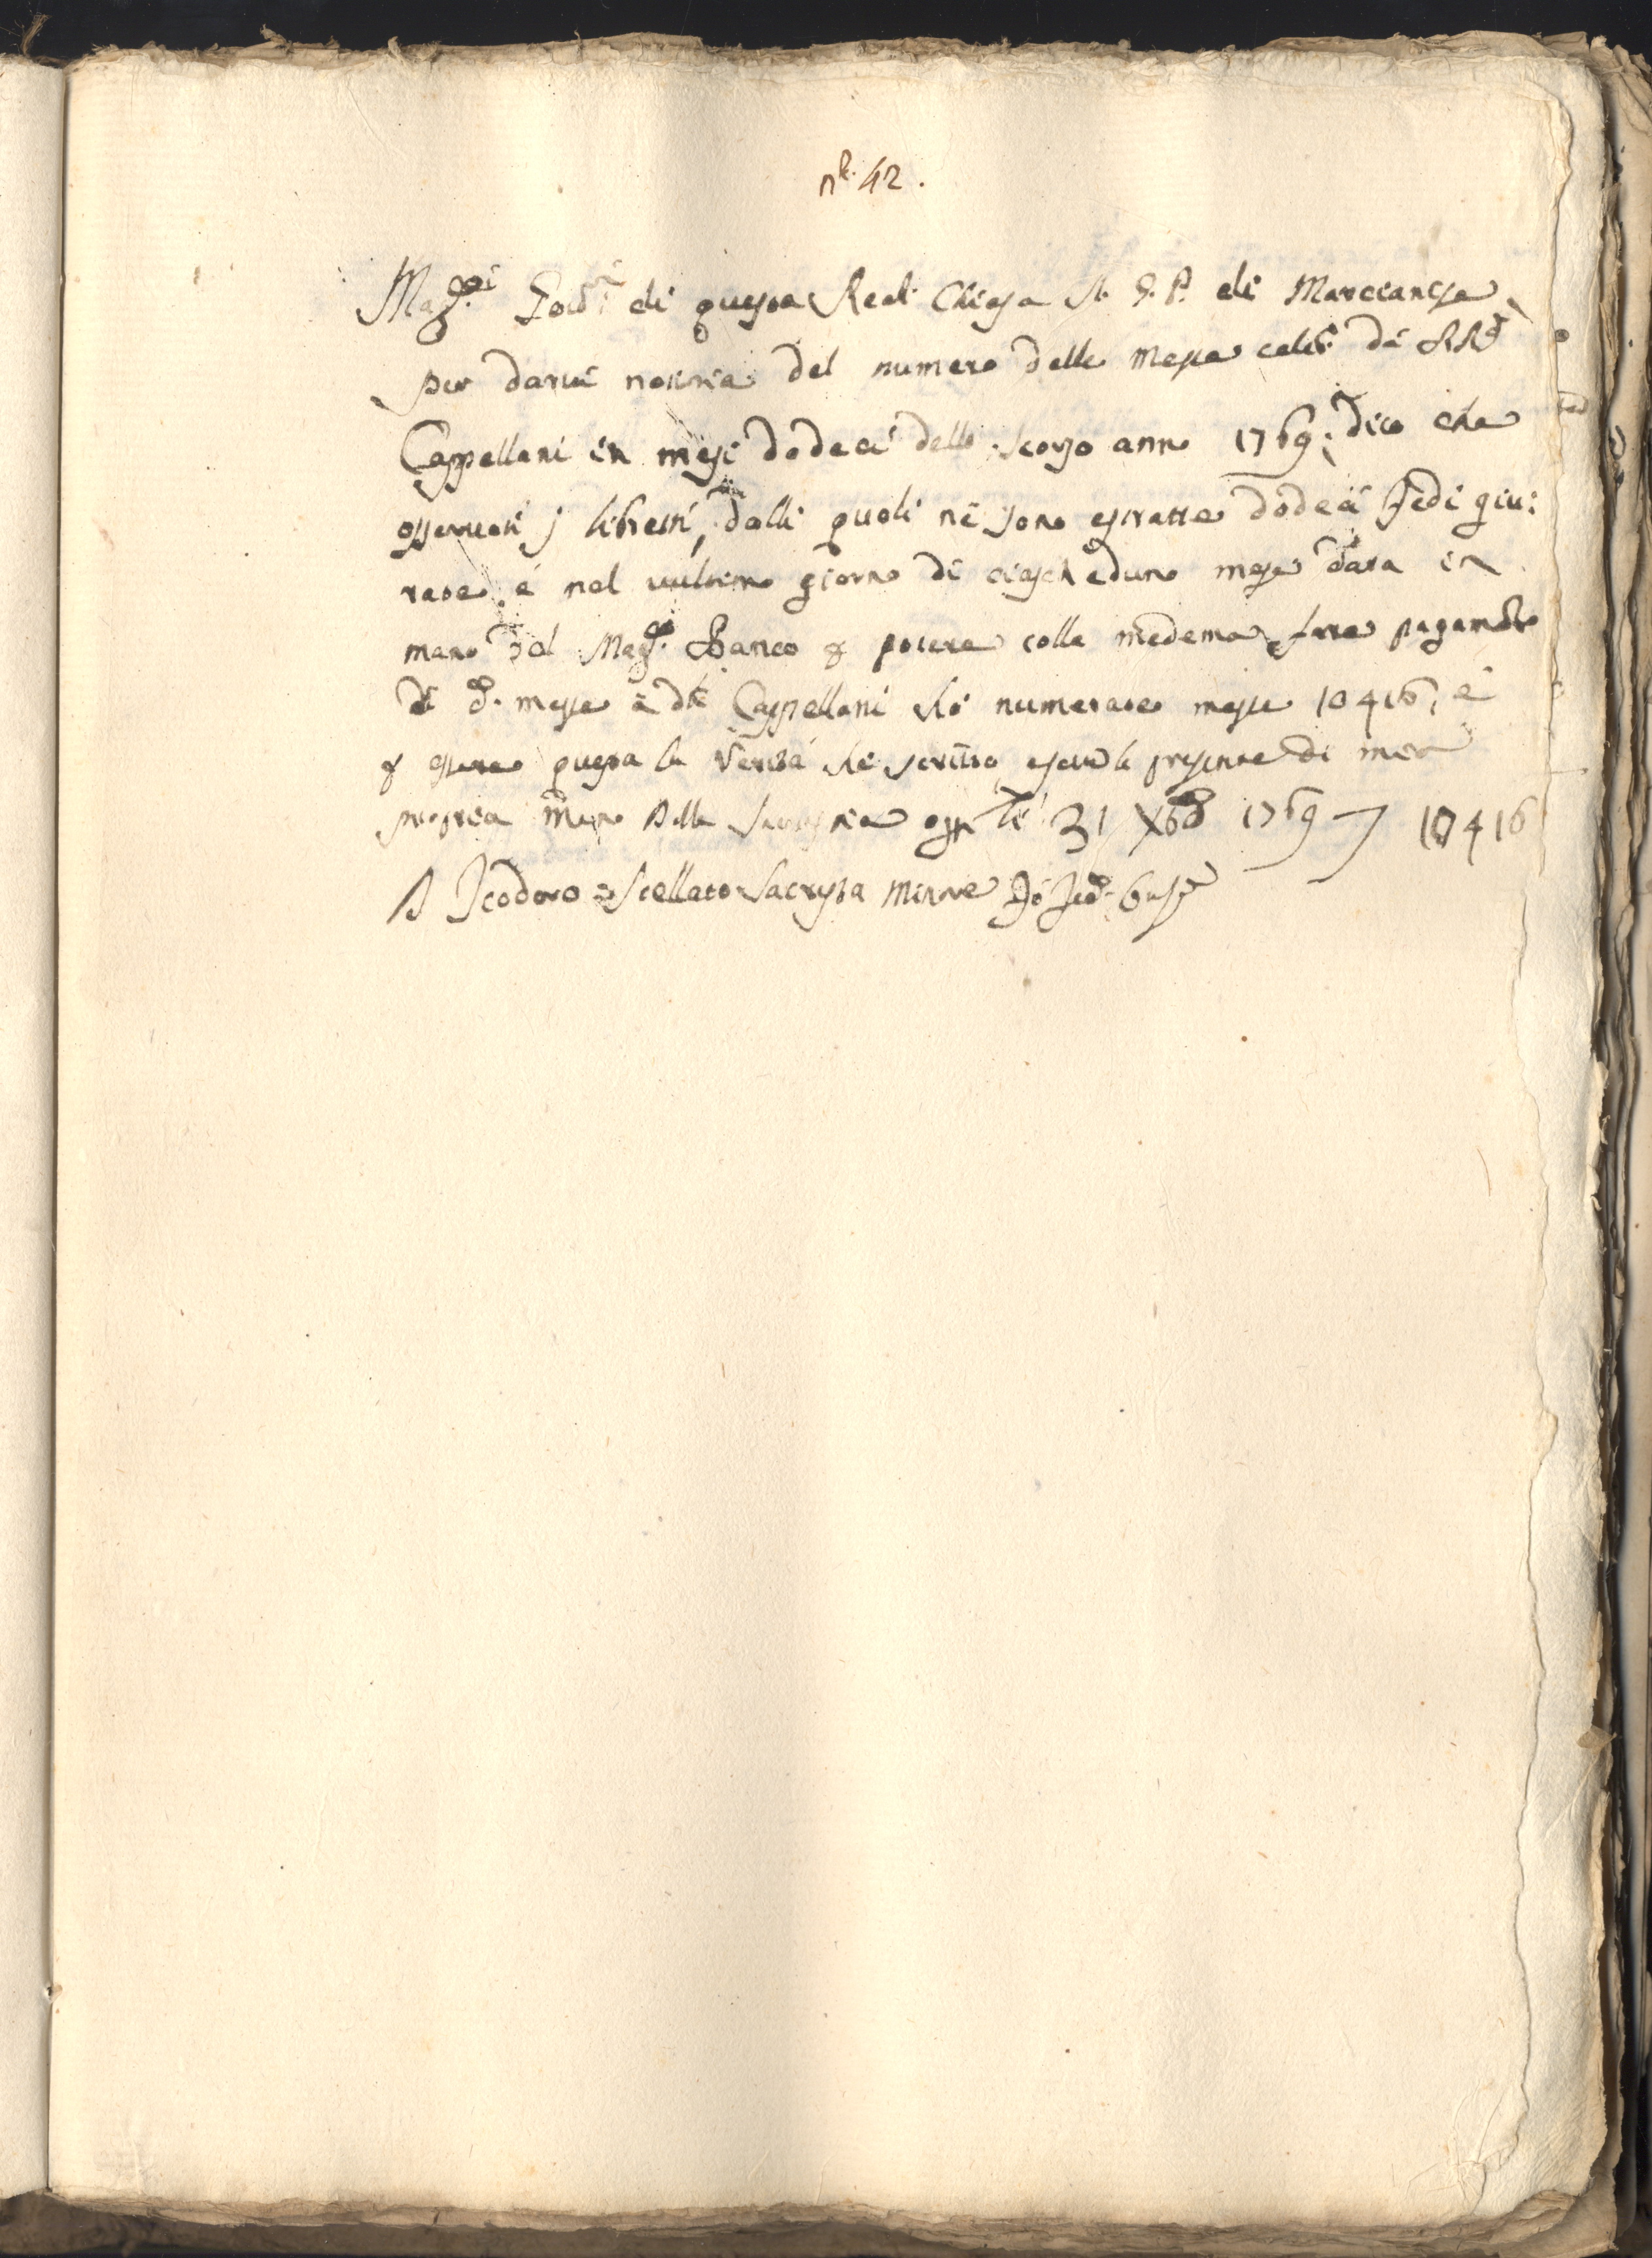 n.º 42.
Mag.ci Gov.ri di questa Real Chiesa A. G. P. di Marcianise
per darvi notitia del numero delle Messe celeb. da RR.di
Cappellani in mesi dodeci dello scorso anno 1769; dico che
osservati j libretti, dalli quali ne sono estratte dodeci Fedi giu:
rate, é nel vultimo giorno di ciascheduno mese data in
mano del Mag.co Banco p potere colla medema fare pagamento
di d.e messe à d.ti Cappellani hò numerate messe 10416, é
p essere questa la verità hò scritto la presente di mia
propria mano Dalla Sacristia oggi li 31 Xbre 1769 10416
D Teodoro Scellato Sacrista Minore